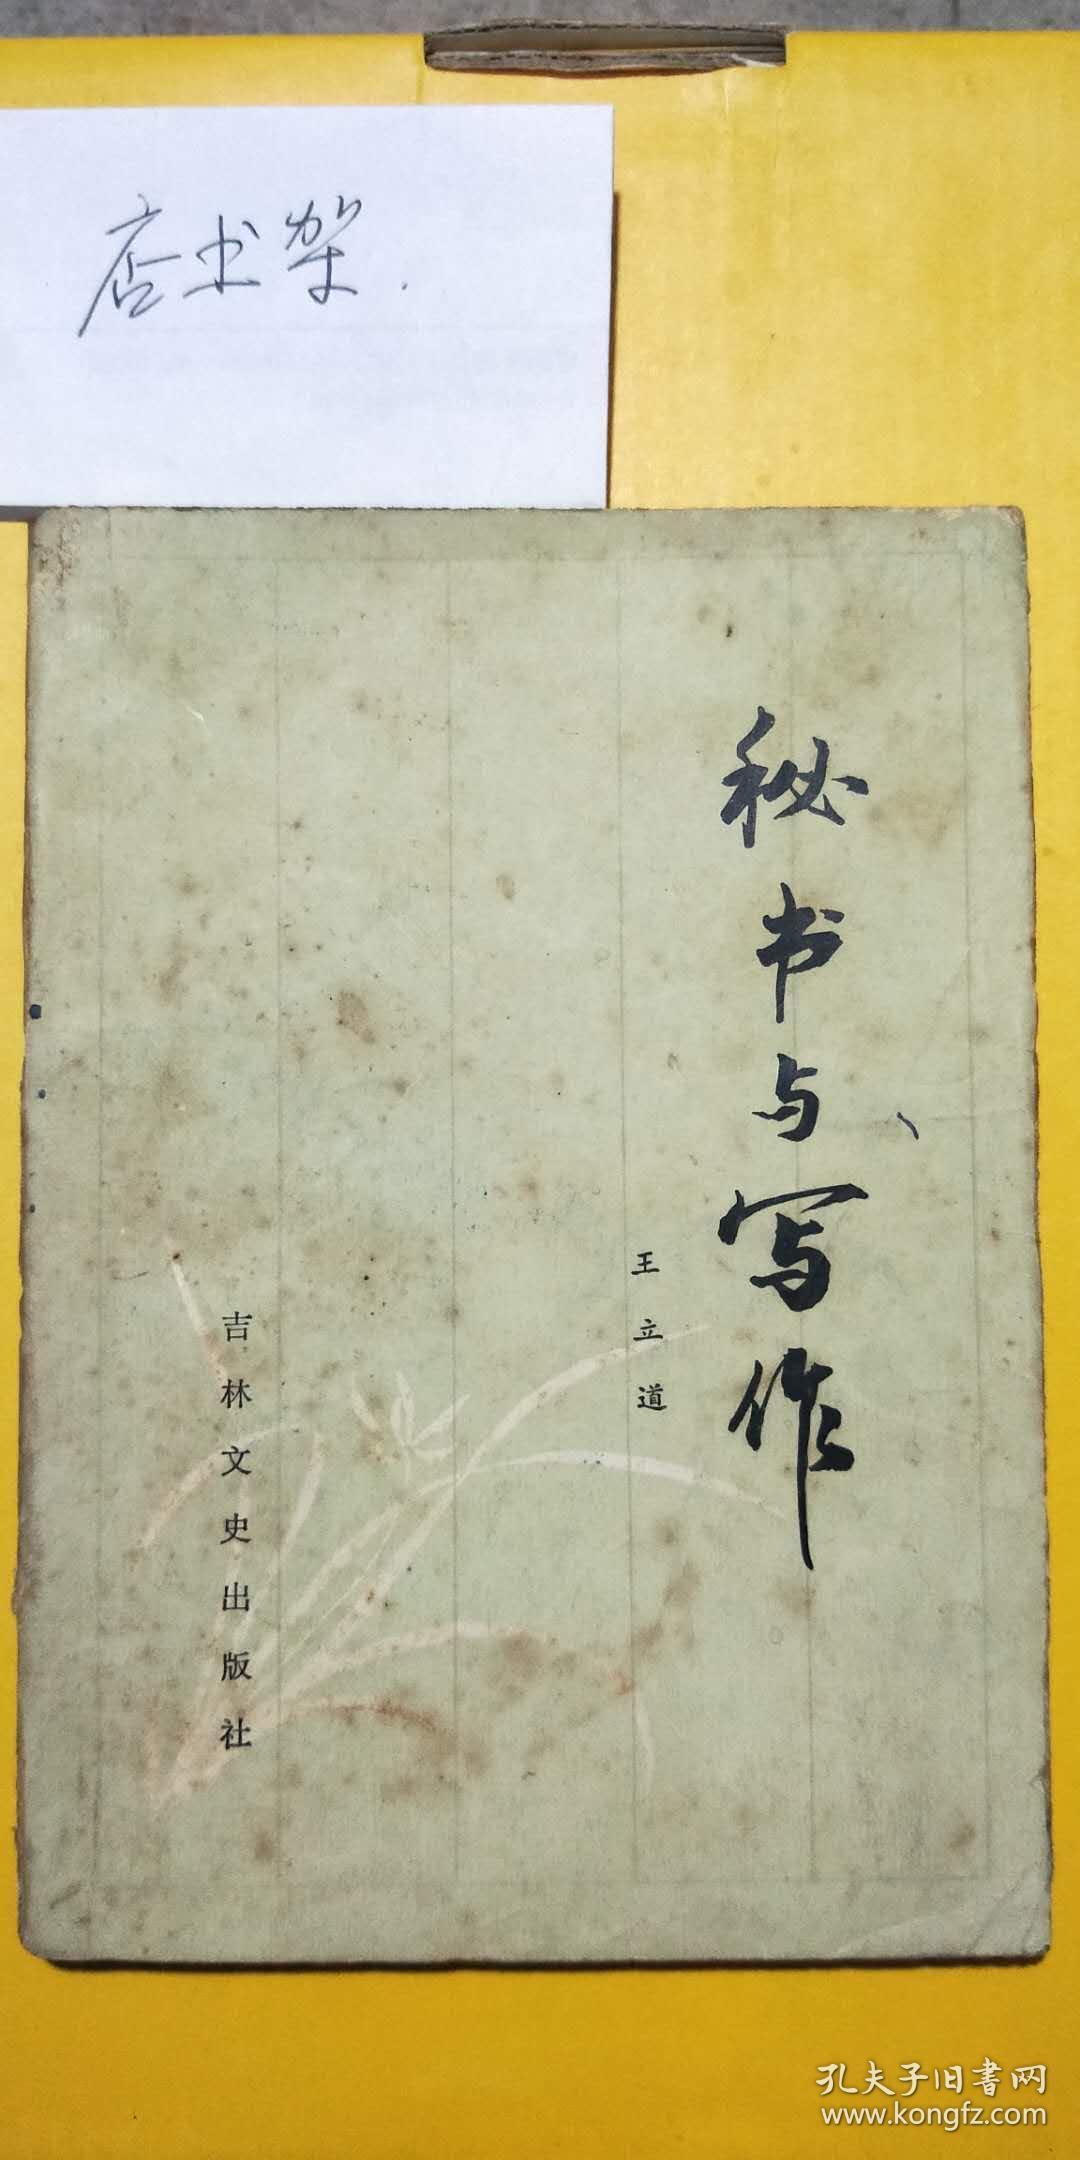 店书架.
秘书与写作
王立道
吉林文史出版社
孔夫子旧書网
www.kongfz.com